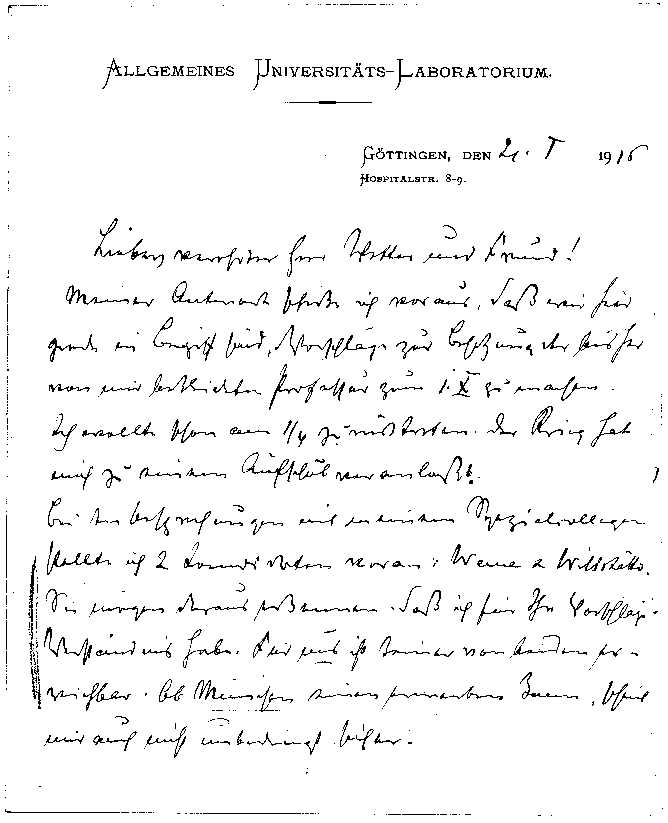 ALLGEMEINES UNIVERSITÄTS-LABORATORIUM.
GÖTTINGEN, DEN 21. I 1915
HOSPITALSTR. 8-9.
Lieber, verehrter Herr Vetter und Freund!
Meiner Antwort schicke ich voraus, daß wir hier
gerade im Begriff sind, Vorschläge zur Besetzung der bisher
von mir bekleideten Professur zum 1. X zu machen.
Ich wollte schon am 1/4 zurücktreten. Der Krieg hat
mich zu einem Aufschub veranlaßt.
Bei den Besprechungen mit meinen Spezialcollegen
stellte ich 2 Kandidaten voran: Werner & Willstätter.
Sie mögen daraus erkennen, daß ich für Ihr Vorschläge
Verständnis habe. Für uns ist keiner von beiden er-
reichbar. Ob München einen erwerben kann, scheint
mir auch nicht unbedingt sicher.